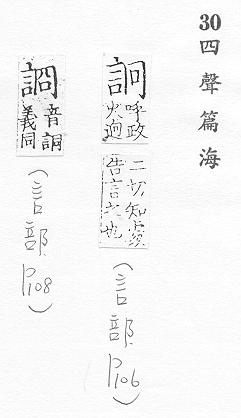 30四聲篇海
詗
呼政
火迥
二切知處
告言之也
(言部 P106)
音詗
義同
(言部 P108)